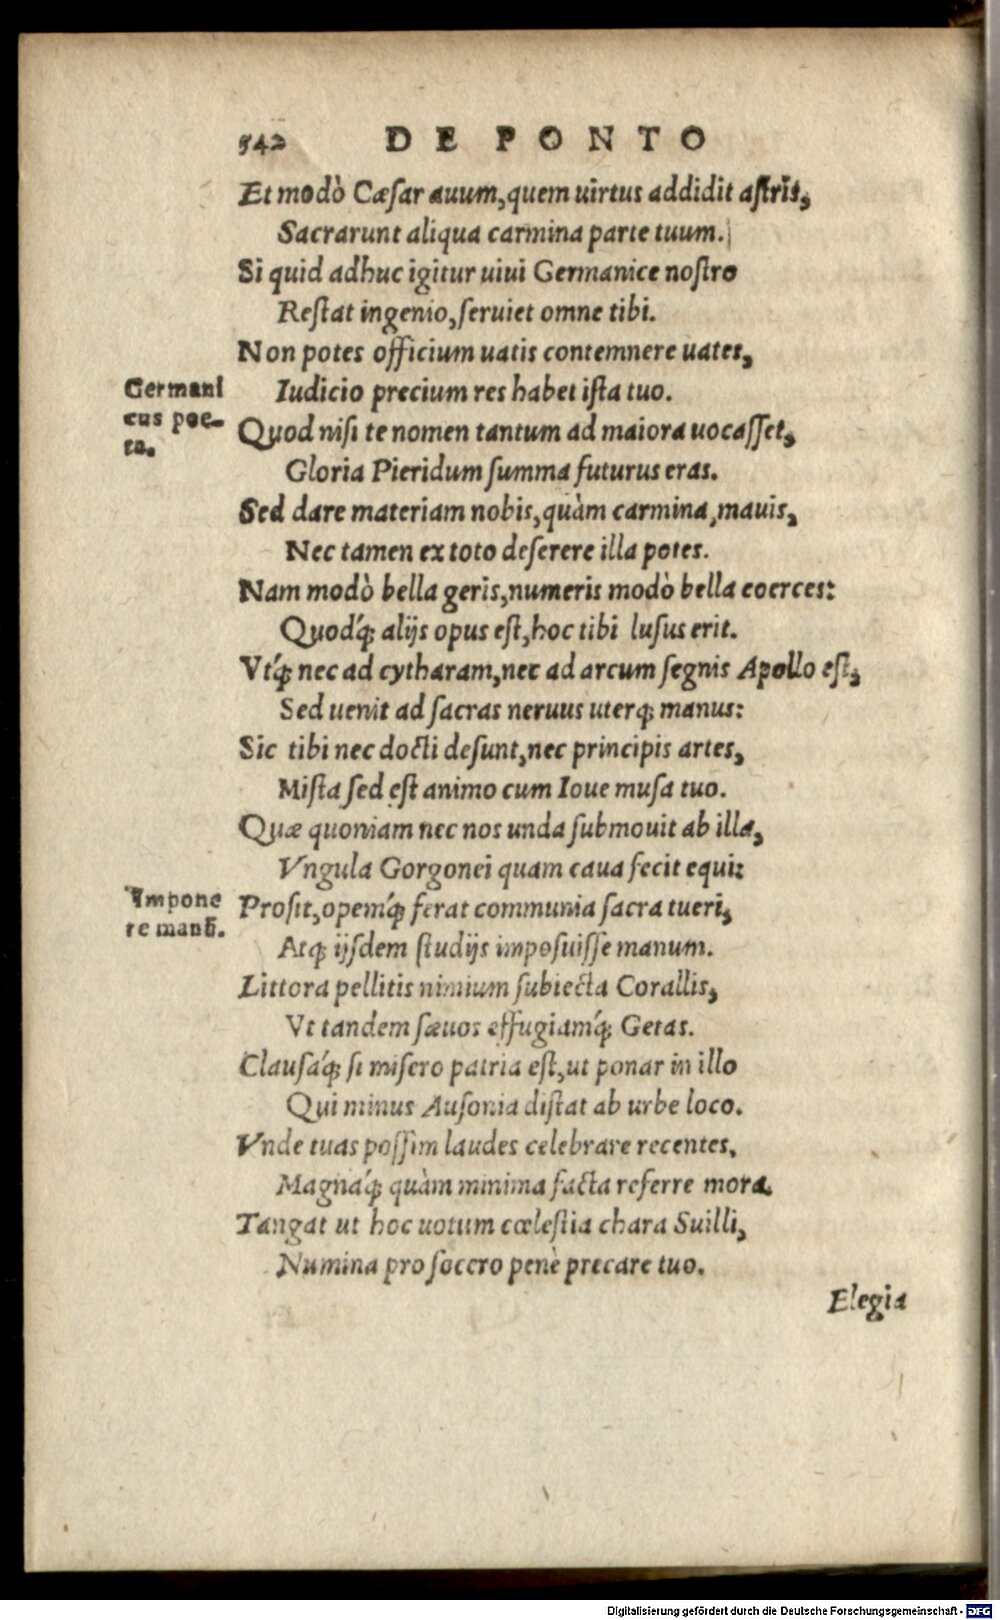 542 DE PONTO
Et modò Cæſar auum, quem uirtus addidit aſtris,
Sacrarunt aliqua carmina parte tuum.
Si quid adhuc igitur uiui Germanice noſtro
Reſtat ingenio, ſeruiet omne tibi.
Non potes officium uatis contemnere uates,
Germani
cus poe-
ta.
Iudicio precium res habet iſta tuo.
Quod niſi te nomen tantum ad maiora uocaſſet,
Gloria Pieridum ſumma futurus eras.
Sed dare materiam nobis, quàm carmina, mauis,
Nec tamen ex toto deſerere illa potes.
Nam modò bella geris, numeris modò bella coerces:
Quodq́; alijs opus eſt, hoc tibi luſus erit.
Vtq́; nec ad cytharam, nec ad arcum ſegnis Apollo eſt,
Sed uenit ad ſacras neruus uterq; manus:
Sic tibi nec docti deſunt, nec principis artes,
Miſta ſed eſt animo cum Ioue muſa tuo.
Quæ quoniam nec nos unda ſubmouit ab illa,
Vngula Gorgonei quam caua fecit equi:
Impone
re manũ.
Proſit, opemq́; ferat communia ſacra tueri,
Atq; ijſdem ſtudijs impoſuiſſe manum.
Littora pellitis nimium ſubiecta Corallis,
Vt tandem ſæuos effugiamq́; Getas.
Clauſaq́; ſi miſero patria eſt, ut ponar in illo
Qui minus Auſonia diſtat ab urbe loco.
Vnde tuas poſſim laudes celebrare recentes,
Magnaq́; quàm minima facta referre mora.
Tangat ut hoc uotum cœleſtia chara Suilli,
Numina pro ſocero penè precare tuo.
Elegia
Digitalisierung gefördert durch die Deutsche Forschungsgemeinschaft - DFG